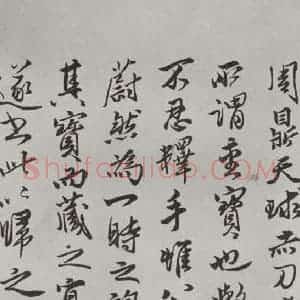 周鼎天球赤刀
所謂重寶也歟
不忍釋手惟公
蔚然為一時之
其寶而藏之宜
遂書此以歸之
Shufaziliao.com